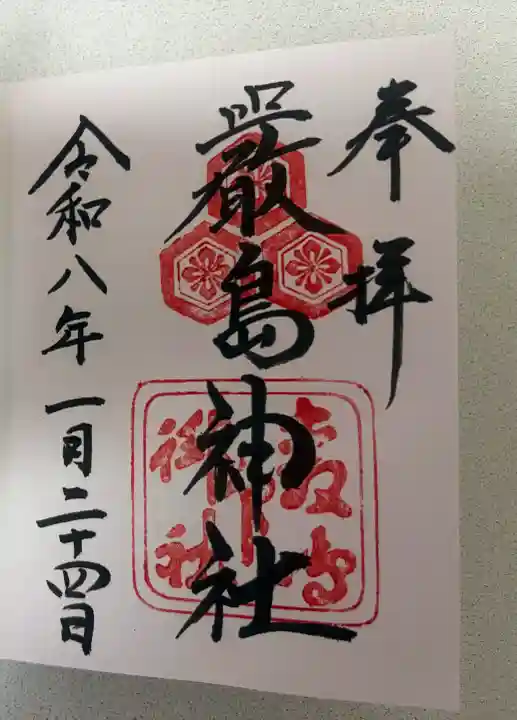 奉拝
嚴島神社
令和八年一月二十四日